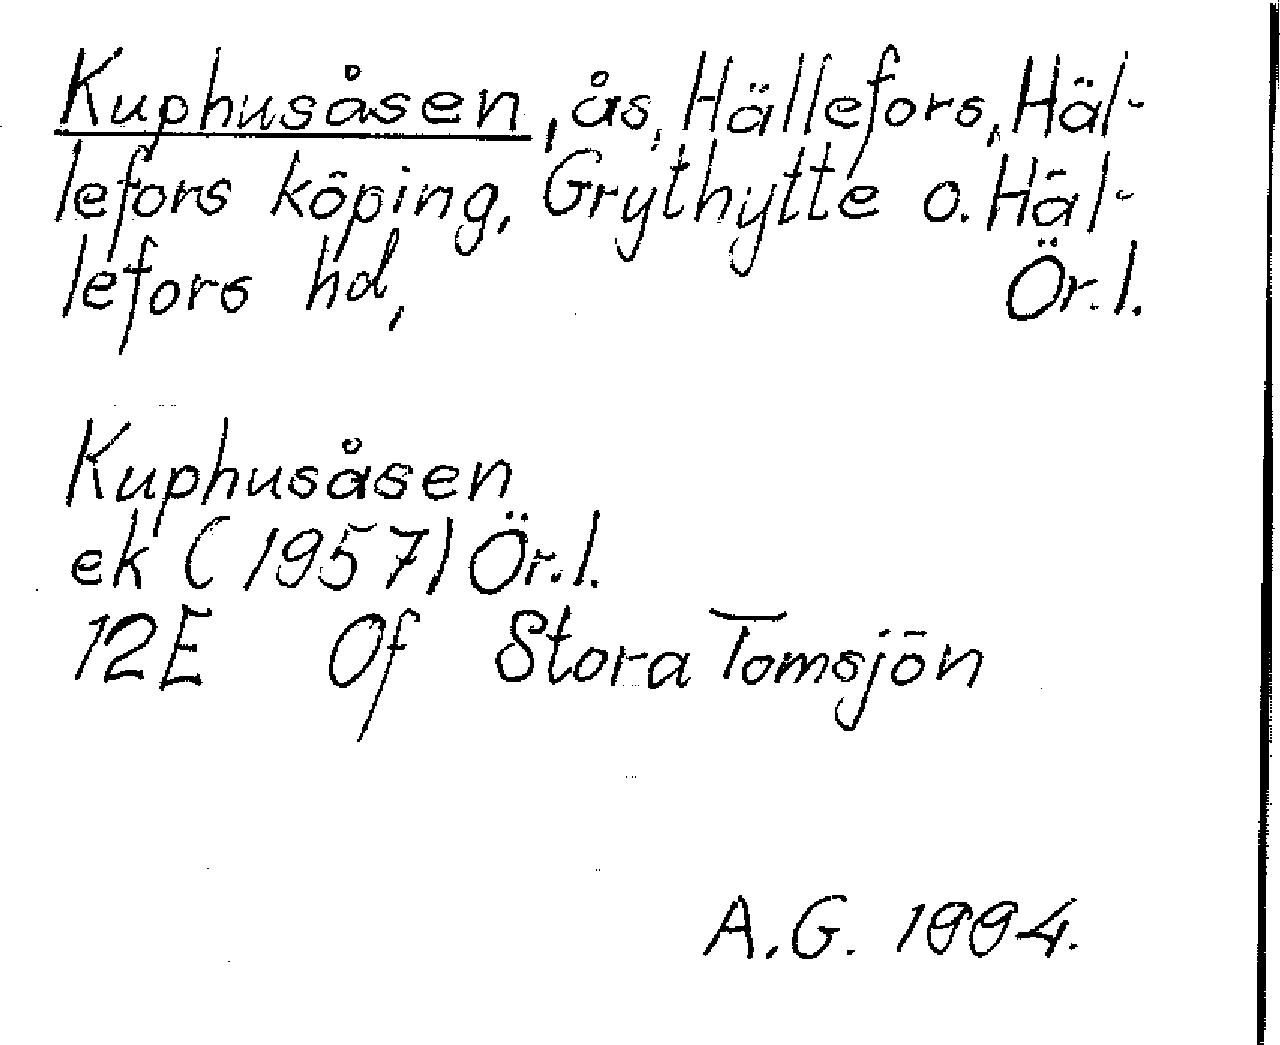 Kuphusåsen, ås, Hällefors, Häl-
lefors köping, Grythytte o. Häl-
lefors hd, Ör. l.
Kuphusåsen
ek (1957) Ör. l.
12E 0f Stora Tomsjön
A.G. 1994.